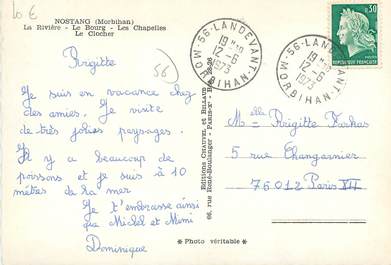 10 €
NOSTANG (Morbihan)
La Rivière - Le Bourg - Les Chapelles
Le Clocher
56 - LANDEVANT
19 H30
12-6
1973
MORBIHAN
56 - LANDEVANT
12-6
1973
MORBIHAN
0,30
REPUBLIQUE FRANÇAISE
Brigitte
56
Je suis en vacance chez
des amies. Je visite
de très jolies paysages.
Il y a beaucoup de
poissons et je suis à 10
mètres de la mer
Je t'embrasse ainsi
que Michel et Mimi
Dominique
Editions CHAUVET et BILLAUD
66, rue René-Boulanger - PARIS-Xe
Melle Brigitte Farkas
5 rue Changarnier
75012 Paris XII
* Photo véritable *